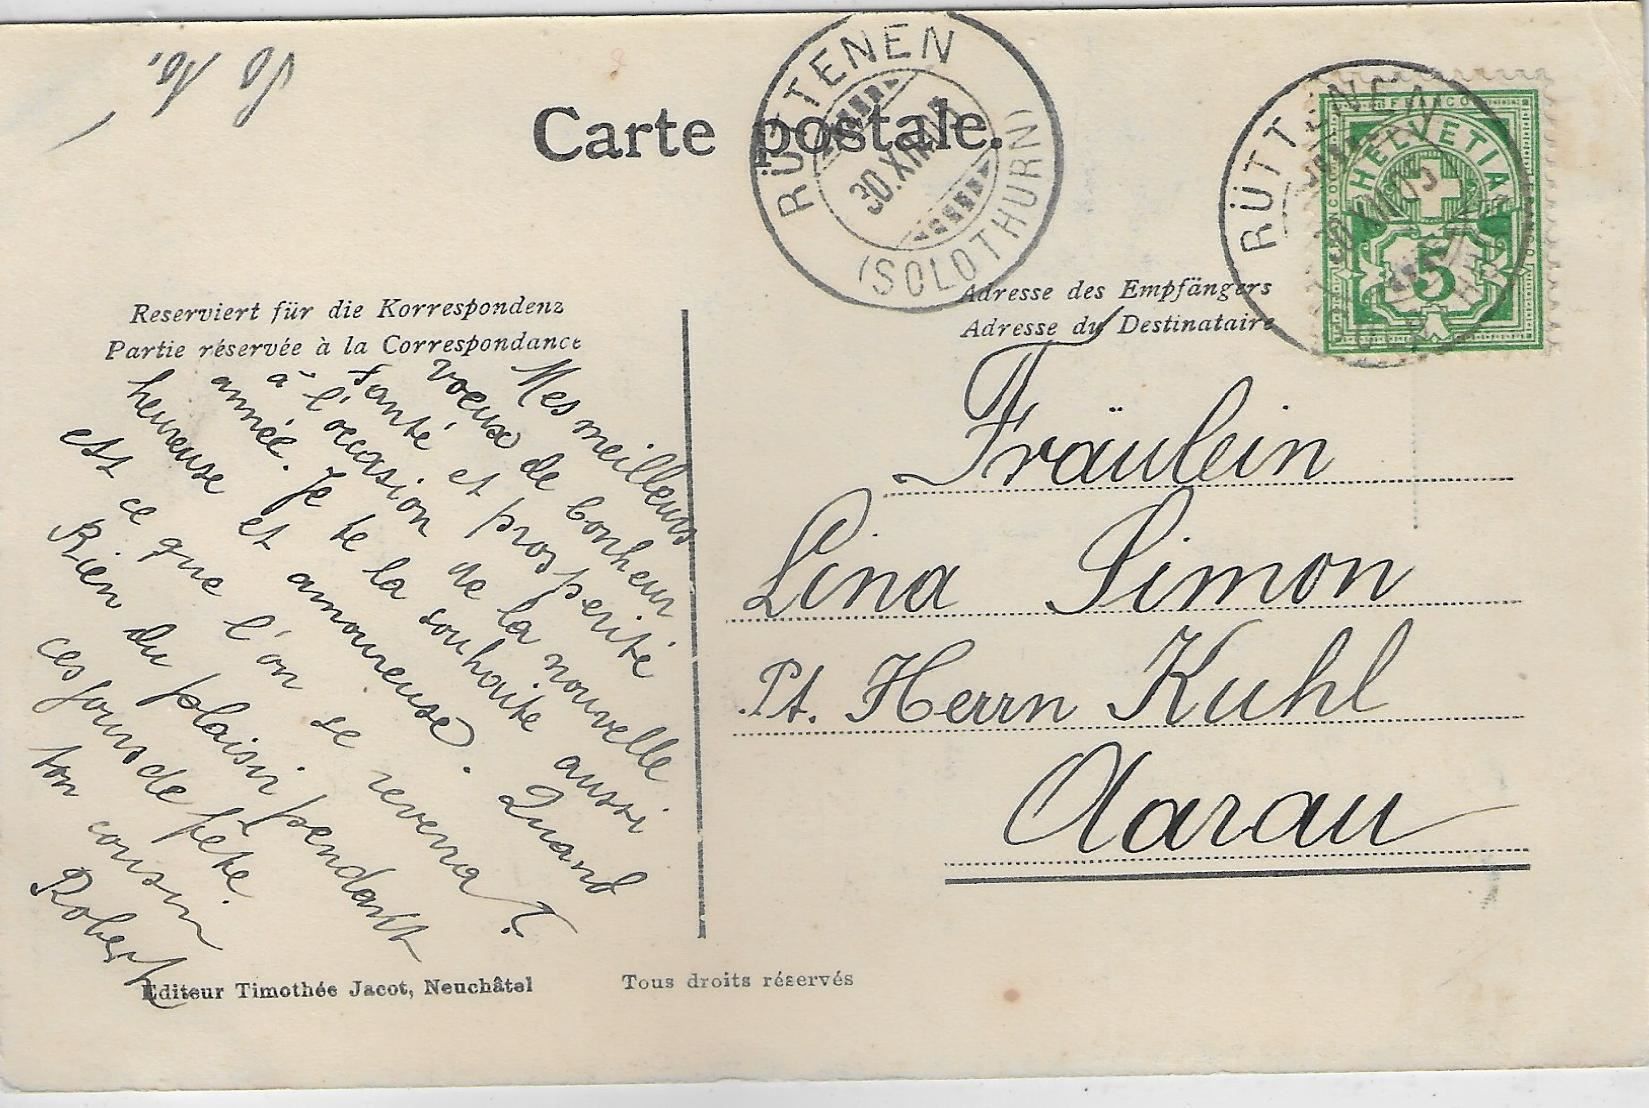 Carte postale.
RÜTTENEN
30.XII.05
(SOLOTHURN)
RÜTTENEN
30.XII.05
FRANCO
HELVETIA
5
Reserviert für die Korrespondenz
Partie réservée à la Correspondance
Adresse des Empfängers
Adresse du Destinataire
Mes meilleurs
voeux de bonheur
santé et prosperité
à l'occasion de la nouvelle
année. Je te la souhaite aussi
heureuse et amoureuse. Quand
est ce que l'on se reverra?
Rien du plaisir pendant
ces jours de fête.
ton cousin
Robert
Fräulein
Lina Simon
Pt. Herrn Kuhl
Aarau
Editeur Timothée Jacot, Neuchâtel
Tous droits réservés